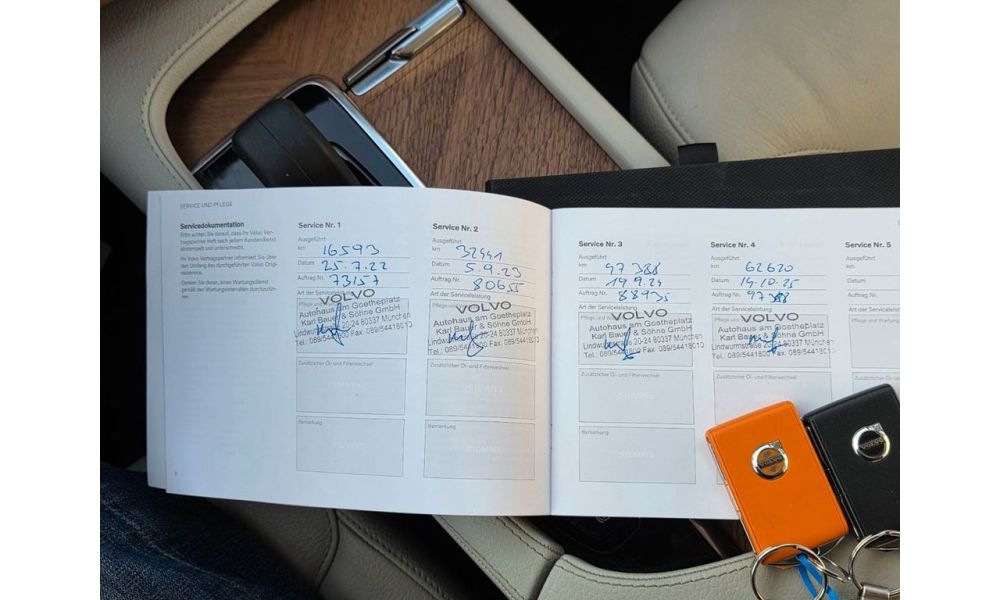 SERVICE UND PFLEGE
Servicedokumentation
Bitte achten Sie darauf, dass Ihr Volvo Ver-
tragspartner Heft nach jedem Kundendienst
abstempelt und unterschreibt.
Ihr Volvo Vertragspartner informiert Sie über
den Umfang des durchgeführten Volvo Origi-
nalservice.
Denken Sie daran, einen Wartungsdienst
gemäß den Wartungsintervallen durchzufüh-
ren.
Service Nr. 1
Ausgeführt
km 16593
Datum 25.7.22
Auftrag Nr. 73157
Art der Serviceleistung
VOLVO
Autohaus am Goetheplatz
Karl Bauer & Söhne GmbH
Lindwurmstraße 20-24 80337 München
Tel.: 089/5441800 Fax: 089/54418010
Zusätzlicher Öl- und Filterwechsel
STEMPEL
Bemerkung
Service Nr. 2
Ausgeführt
km 32441
Datum 5.9.23
Auftrag Nr. 80655
Art der Serviceleistung
VOLVO
Autohaus am Goetheplatz
Karl Bauer & Söhne GmbH
Lindwurmstraße 20-24 80337 München
Tel.: 089/5441800 Fax: 089/54418010
Zusätzlicher Öl- und Filterwechsel
STEMPEL
Bemerkung
STEMPEL
Service Nr. 3
Ausgeführt
km 47388
Datum 19.9.24
Auftrag Nr. 88935
Art der Serviceleistung
VOLVO
Autohaus am Goetheplatz
Karl Bauer & Söhne GmbH
Lindwurmstraße 20-24 80337 München
Tel.: 089/5441800 Fax: 089/54418010
Zusätzlicher Öl- und Filterwechsel
STEMPEL
Bemerkung
STEMPEL
Service Nr. 4
Ausgeführt
km 62620
Datum 14.10.25
Auftrag Nr.
Art der Serviceleistung
VOLVO
Autohaus am Goetheplatz
Karl Bauer & Söhne GmbH
Lindwurmstraße 20-24 80337 München
Tel.: 089/5441800 Fax: 089/54418010
Zusätzlicher Öl- und Filterwechsel
STEMPEL
Bemerkung
Service Nr. 5
Ausgeführt
km
Datum
Auftrag Nr.
Art der Serviceleistung
Pflege und Wartung
Zusätzlicher
VOLVO
VOLVO